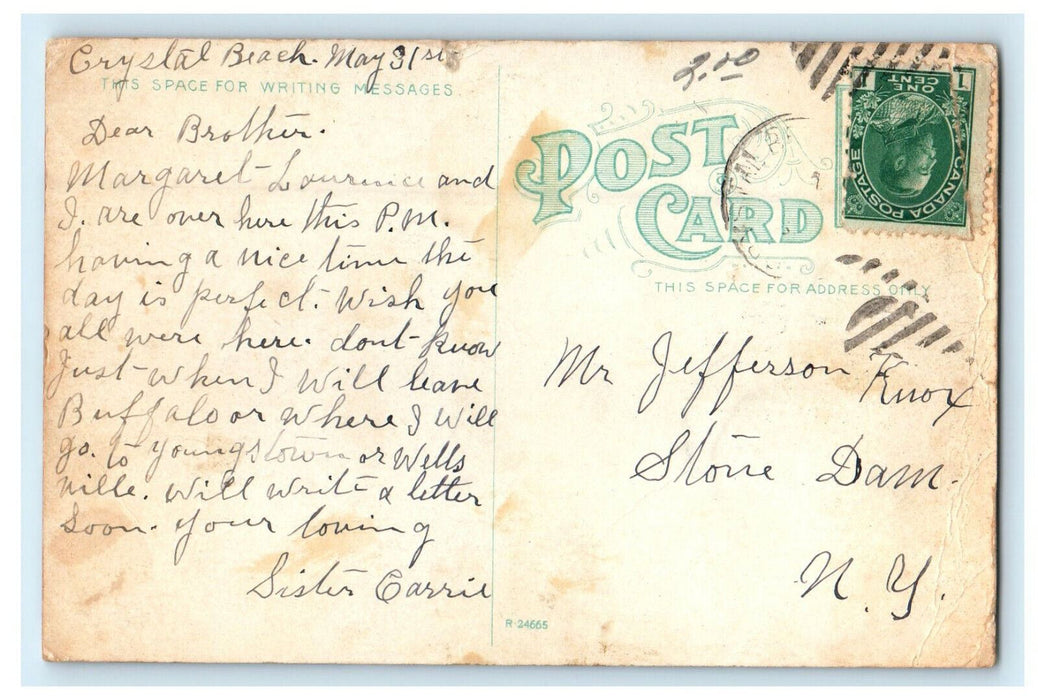 Crystal Beach. May 31st
THIS SPACE FOR WRITING MESSAGES.
Dear Brother.
Margaret Laurence and
I. are over here this P.M.
having a nice time the
day is perfect. Wish you
all were here. dont know
Just when I will leave
Buffalo or where I will
go. to Youngstown or Wells
ville. will write a letter
soon. your loving
Sister Carrie
2.00
POST
CARD
THIS SPACE FOR ADDRESS ONLY
CANADA POSTAGE
ONE
CENT
1
Mr Jefferson Knox
Stone Dam.
N. Y.
R-24665